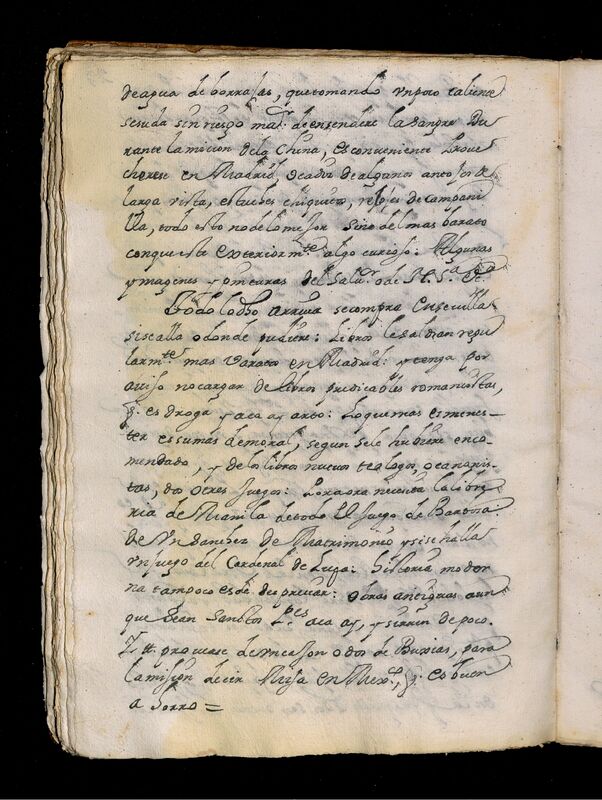 de agua de borrajas, que tomando un poco caliente
se suda sin riesgo mas. de ensenderse la sangre Du
rante la micion dela China, es conveniente Prove
cherse en Madrid, o cadiz de algunos anteojos de
larga vista, estuches chiquitos, relojes de campani
lla, todo esto no delo mejor sino del mas barato
con queste exteriormte. algo curioso: Algunas
ymagenes y pinturas del Salur. o de N. Sa. &c.
Todo lo dho arriva se compra en sevilla
si se alla o donde pudiere: Libros le saldran regu
larmte. mas varatos en Madrid: y tenga por
aviso no cargar de libros predicables romansistas,
q. es droga y aca ay arto: Lo que mas es menes-
ter es sumas de moral, segun se le hubiere enco-
mendado, y delos libros nuevos teologos, o canonis-
tas, dos o tres juegos: Por aora necesita la libre
ria de Manila de todo El Juego de Barbosa
de Un Sanchez de Matrimonio y si se halla
un juego del Cardenal de Lugo: historia moder
na tampoco es de despreciar: obras antiguas aun
que sean Sanctos Pes. aca ay, y sirven de poco.
Itt. procurase de un cajon o dos de Buxias, para
la mision decir Misa en Mexo., q. es buen
a Jorro =